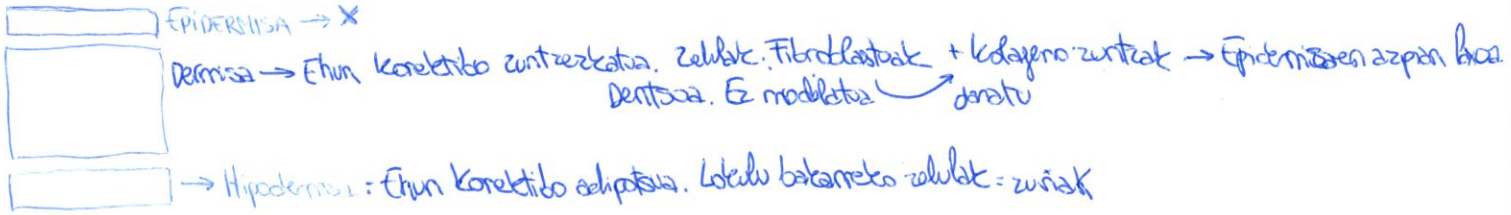 EPIDERMISA → X
Dermisa → Ehun Konektibo zuntzezkatua. Zelulak: Fibroblastoak + Kolageno zuntzak → Epidermisaren azpian laxoa
Dentsoa. Ez modelatua → donatu
→ Hipodermisa: Ehun Konektibo adiposoa. Lobulu bakarreko zelulak = zuriak